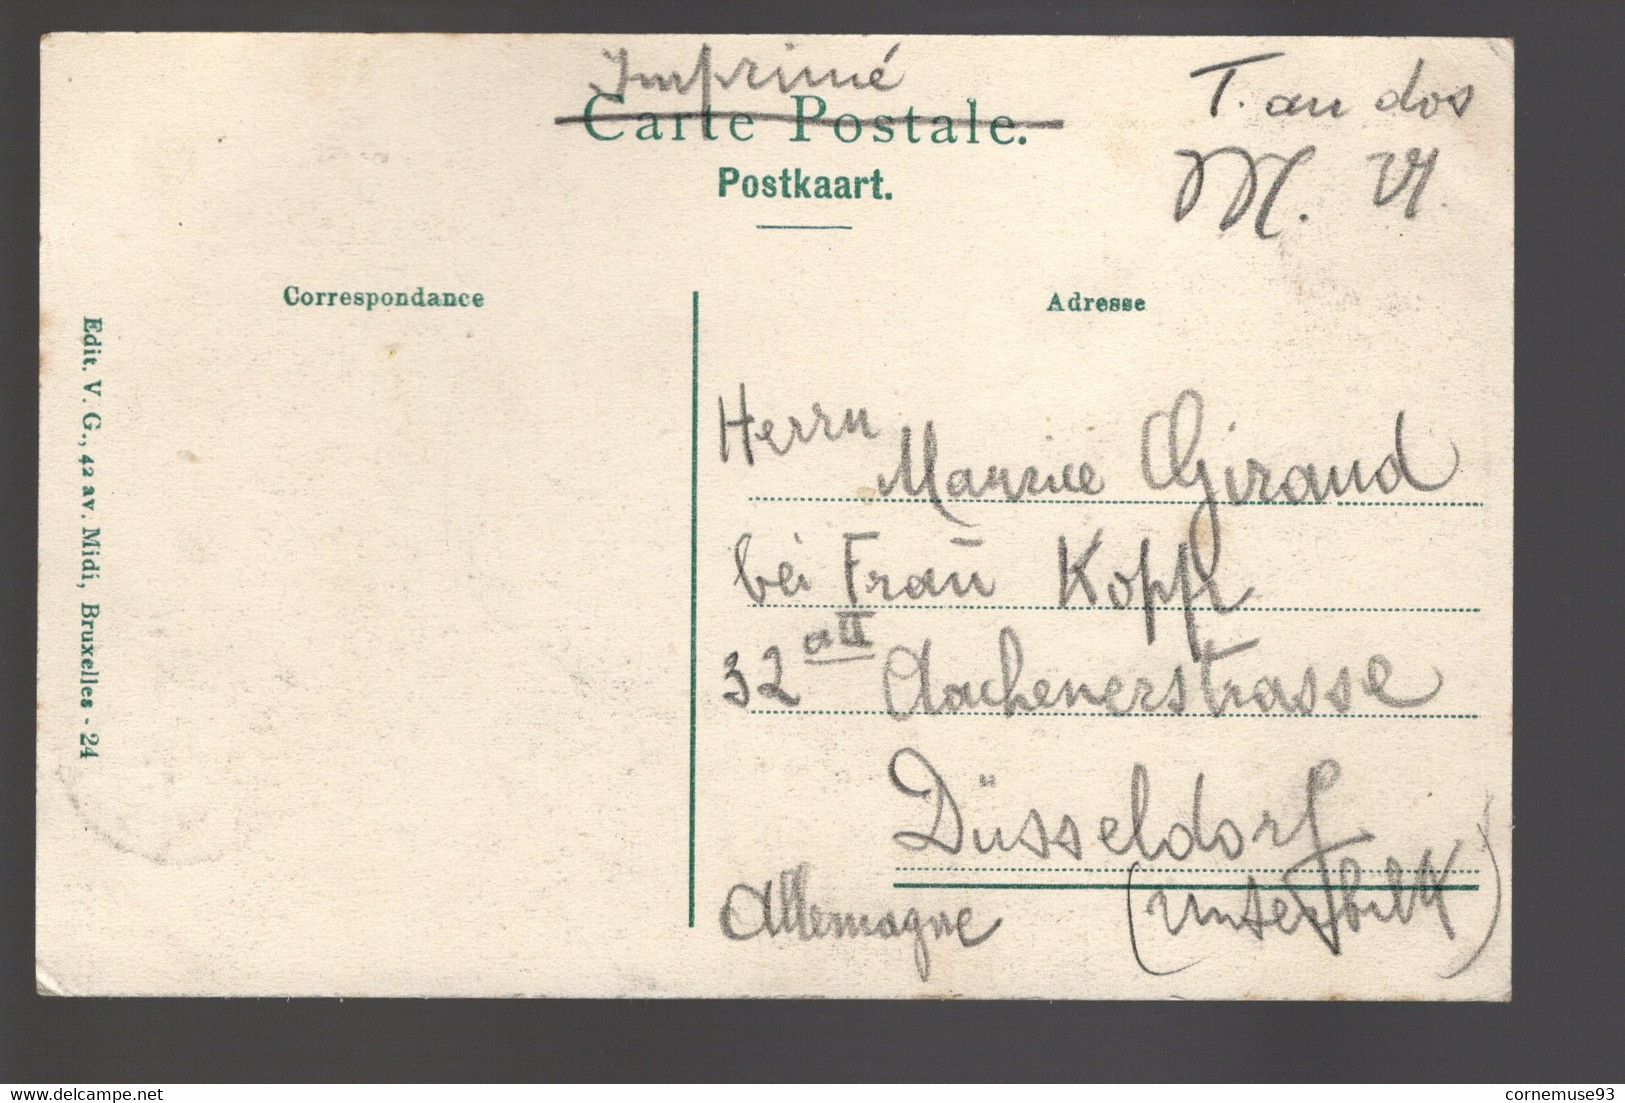 Imprimé
Carte Postale.
Postkaart.
T. au dos
Correspondance
Adresse
Edit. V. G., 42 av. Midi, Bruxelles - 24
Herrn
Maurice Giraud
bei Frau Kopp
32 a II Aachenerstrasse
Düsseldorf
Allemagne (Unterbilk)
www.delcampe.net
cornemuse93